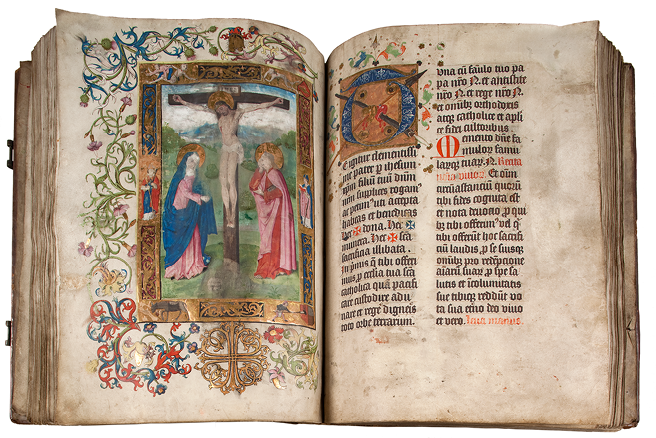 T
E igitur clementissi
me pater p ihesum
xpm filiū tuū dnm
nrm supplices rogam⁹
ac petim⁹ uti accepta
habeas et benedicas
hec ✠ dona. Hec ✠
munera. Hec ✠ scā
sacrificia illibata.
In primis q̄ tibi offeri
mus p ecclia tua scā
catholica quā pacifi
care custodire adu
nare et regē digneris
toto orbe terrarum.
vna cū famlo tuo pa
pa nrō N. et antistite
nrō N. et rege nrō N.
et omib⁹ orthodoxis
atq̄ catholice et apli
ce fidei cultoribus.
Memento dn̄e fa
mulorꝫ famu
larꝫq̄ tuarꝫ. N.
Et oīm
circūstanciū quorū
tibi fides cognita est
et nota deuocio p qui
bꝫ tibi offerim⁹ vel q̄
tibi offerūt hoc sacrifi
ciū laudis, p se suisq̄
omībꝫ pro redēpcione
aīarū suarꝫ p spe sa
lutis et incolumitatis
sue tibiq̄ reddūt vo
ta sua etno deo viuo
et vero.